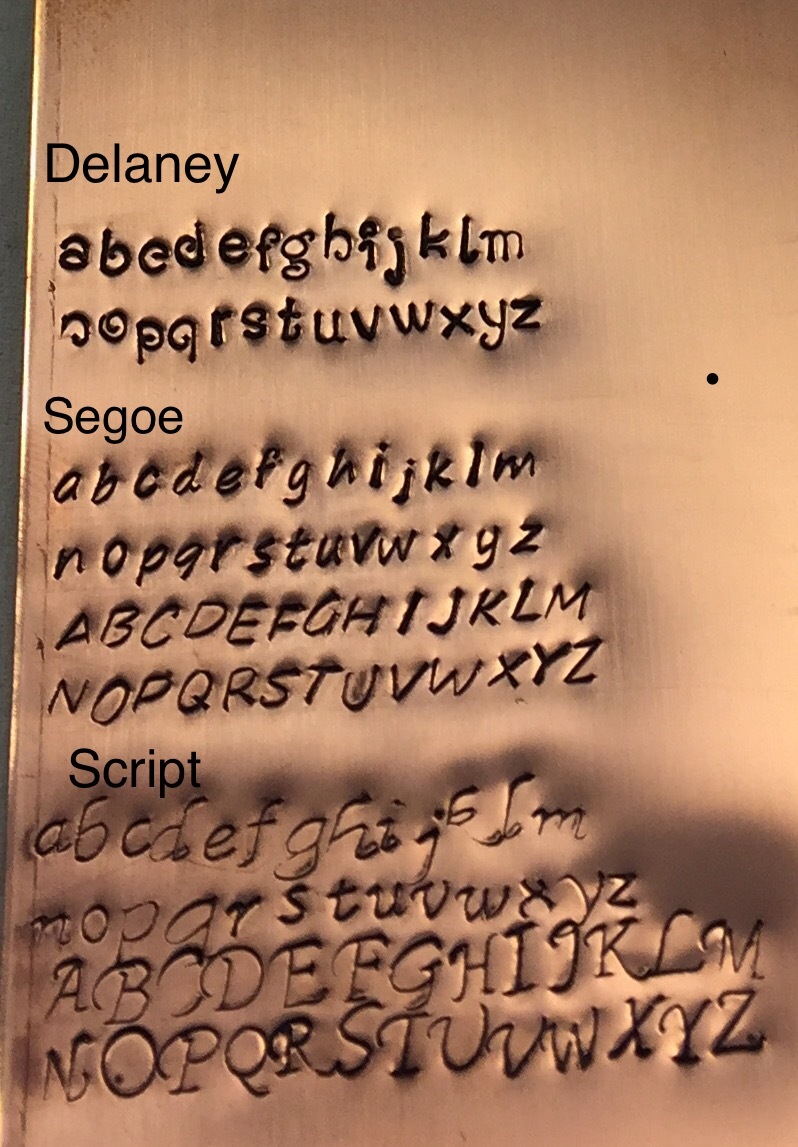 Delaney
abcdefghijklm
nopqrstuvwxyz
Segoe
abcdefghijklm
nopqrstuvwxyz
ABCDEFGHIJKLM
NOPQRSTUVWXYZ
Script
abcdefghijklm
nopqrstuvwxyz
ABCDEFGHIJKLM
NOPQRSTUVWXYZ